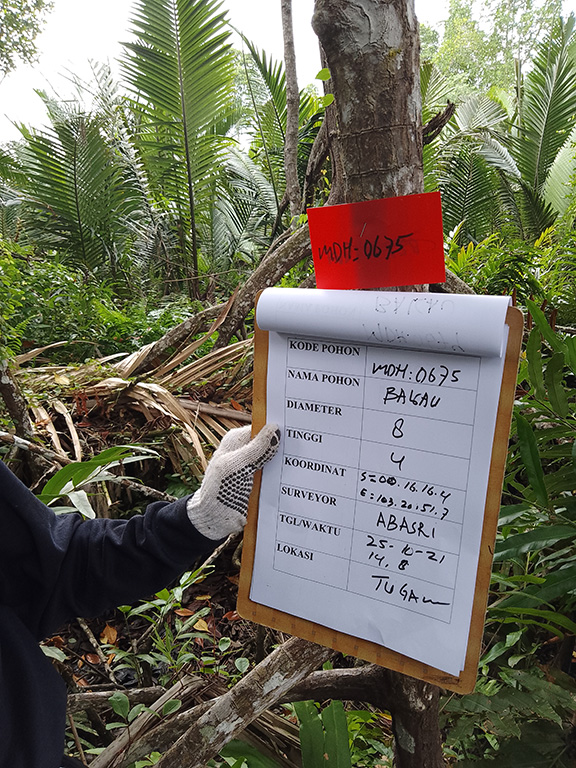 MDH:0675
KODE POHON MDH:0675
NAMA POHON BAKAU
DIAMETER 8
TINGGI 4
KOORDINAT S=00.16.16.4
E:103.20.51.7
SURVEYOR ABASRI
TGL/WAKTU 25-10-21
14.8
LOKASI